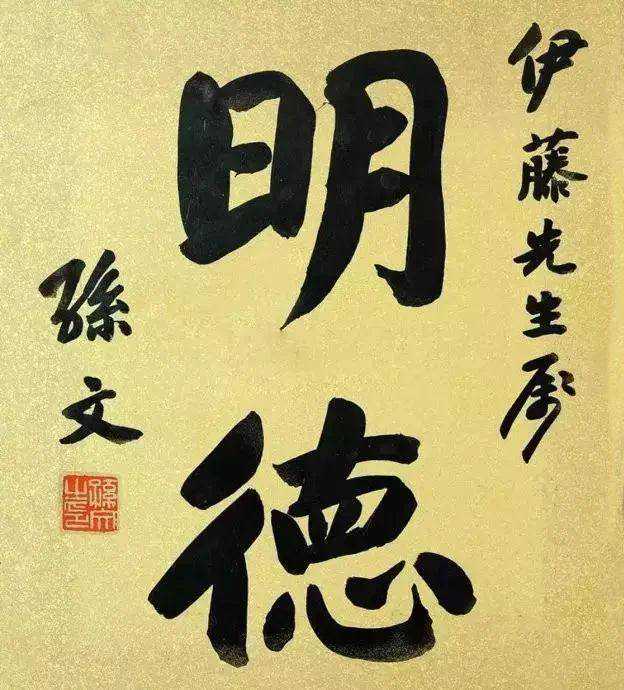 伊藤先生属
明徳
孫文
孫文之印